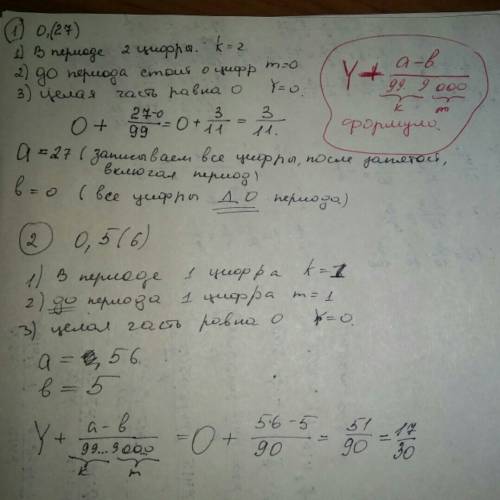 ① 0,(27)
1) В периоде 2 цифры. k=2
2) до периода стоит 0 цифр m=0
3) целая часть равна 0 Y=0.
0 + 27-0/99 = 0 + 3/11 = 3/11.
a = 27 (записываем все цифры, после запятой,
включая период)
b = 0 (все цифры ДО периода)
Y + a-b/99..9 000
k m
формула.
② 0,5(6)
1) В периоде 1 цифра k=1
2) до периода 1 цифра m=1
3) целая часть равна 0 Y=0.
a = 56
b = 5
Y + a-b/99...9 000 = 0 + 56-5/90 = 51/90 = 17/30
k m